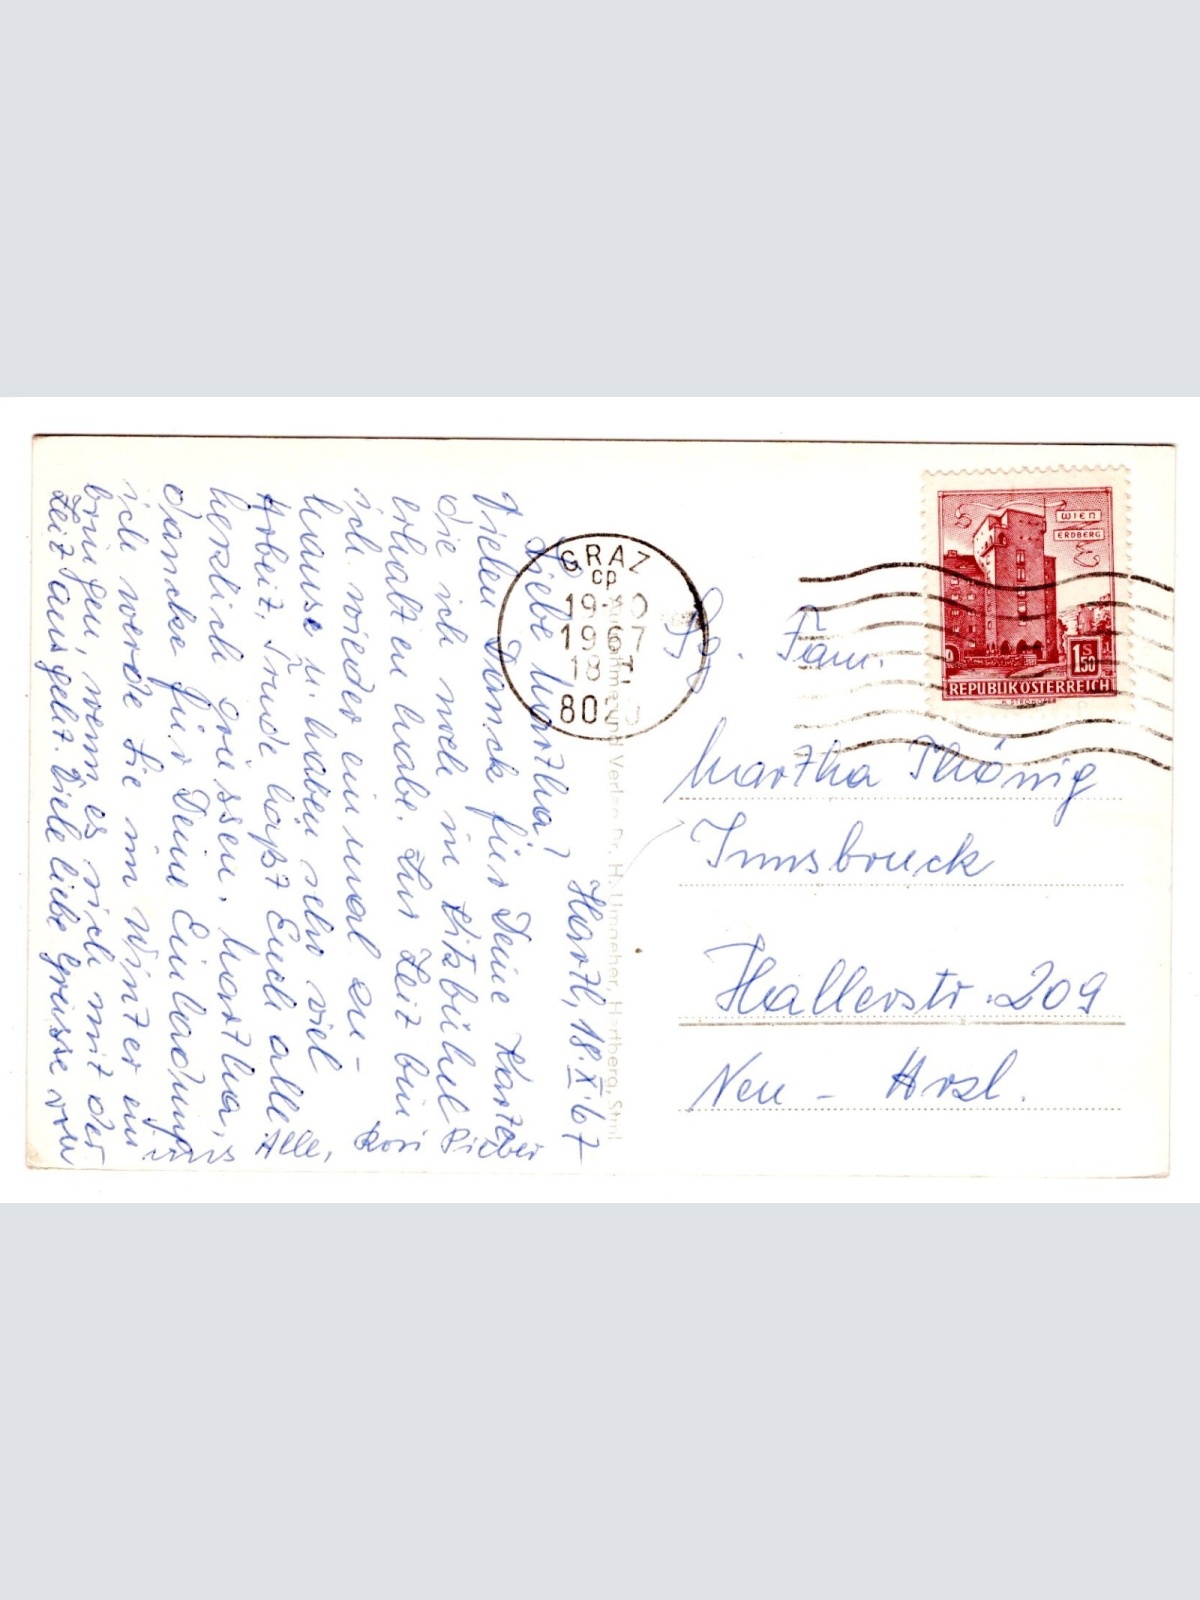 Hartl, 18. X. 67
Liebe Martha!
Vielen Danck für Deine Karte
die ich noch in Kitzbühel
erhalten habe. Zur Zeit bin
ich wieder einmal zu-
hause u. haben sehr viel
Arbeit, Trude läßt Euch alle
herzlich grüssen. Martha,
dancke für Deine Einladung
ich werde Sie im Winter ein
bringen, wenn es sich mit der
Zeit ausgeht. Viele liebe Grüsse von
uns Alle, Rosi
GRAZ
CP
1967
18
80
Aufnahme und Verlag Dr. H. Umgeher, Hartberg, Stmk
WIEN
ERDBERG
S
1.50
REPUBLIK ÖSTERREICH
Fam.
Martha Thönig
Innsbruck
Hallerstr. 209
Neu - Arzl.